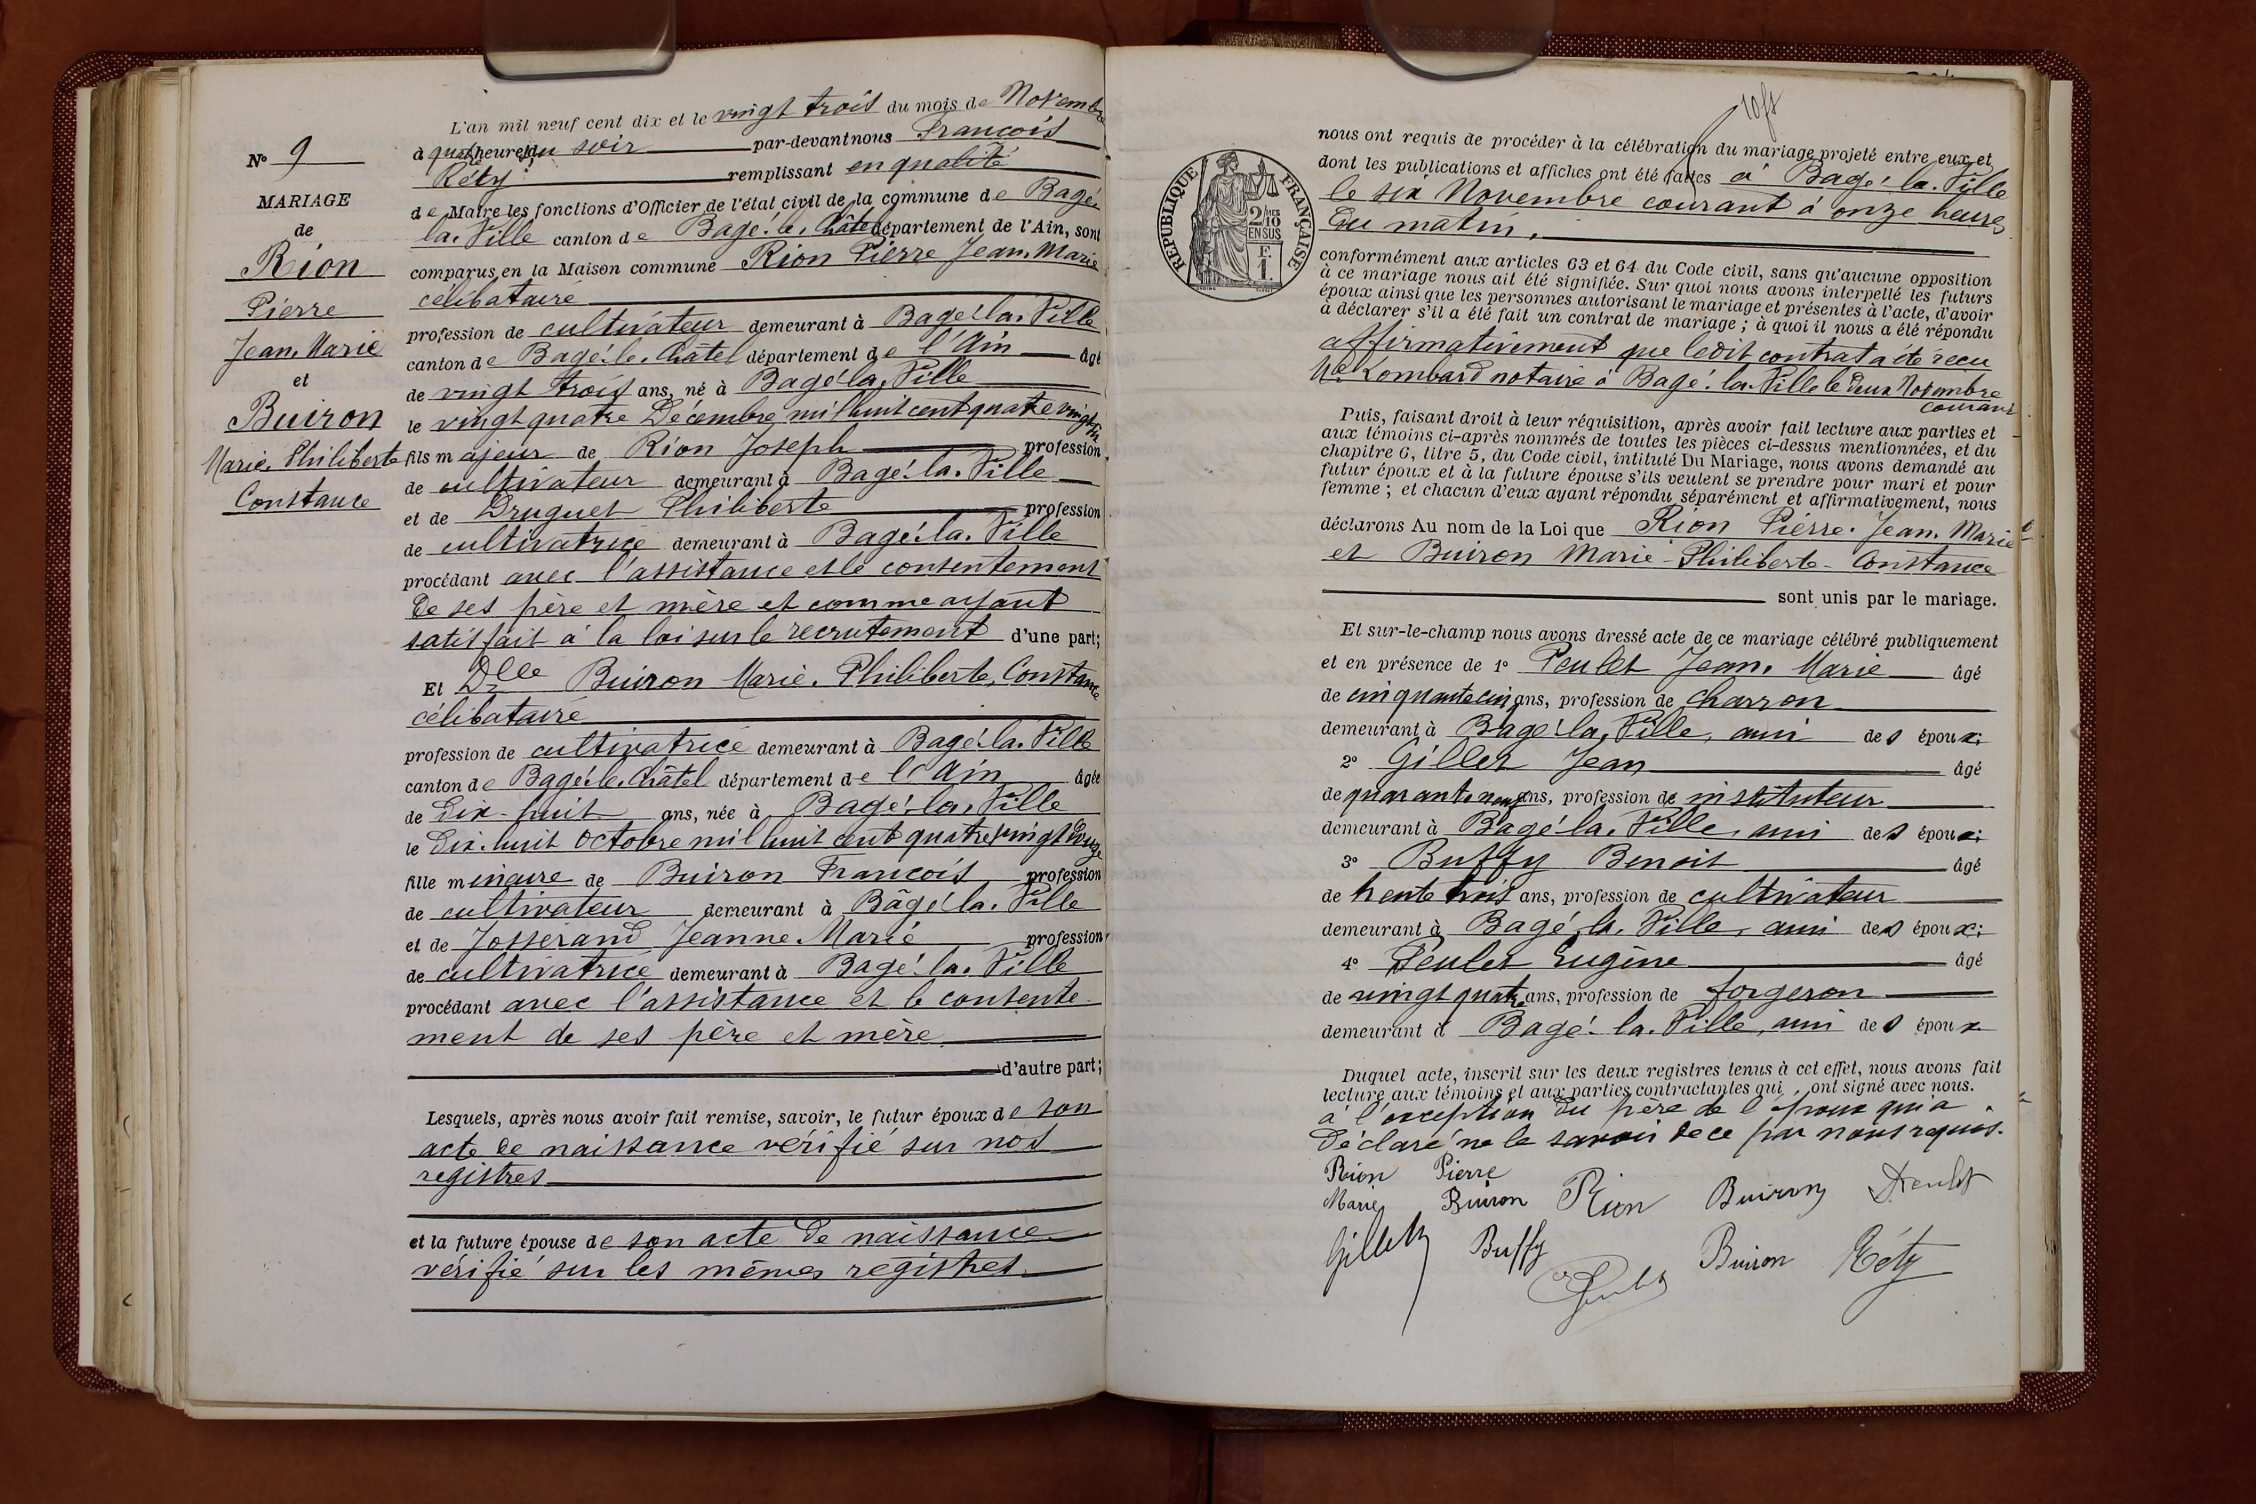 N° 9
MARIAGE
de
Rion
Pierre
Jean, Marie
et
Buiron
Marie, Philiberte
Constance
L'an mil neuf cent dix et le vingt trois du mois de Novembre
à quatre heures du soir par-devant nous François
Réty remplissant en qualité
de Maire les fonctions d'Officier de l'état civil de la commune de Bagé
la. Ville canton de Bagé. le. Châtel département de l'Ain, sont
comparus en la Maison commune Rion Pierre Jean, Marie
célibataire
profession de cultivateur demeurant à Bagé la. Ville
canton de Bagé. le. Châtel département de l'Ain âgé
de vingt trois ans, né à Bagé la. Ville
le vingt quatre Décembre mil huit cent quatre vingt
fils majeur de Rion Joseph profession
de cultivateur demeurant à Bagé. la. Ville
et de Druguet Philiberte profession
de cultivatrice demeurant à Bagé. la. Ville
procédant avec l'assistance et le consentement
de ses père et mère et comme ayant
satisfait à la loi sur le recrutement d'une part;
Et Dlle Buiron Marie. Philiberte, Constance
célibataire
profession de cultivatrice demeurant à Bagé. la. Ville
canton de Bagé. le. Châtel département de l'Ain âgée
de dix-huit ans, née à Bagé. la. Ville
le dix. huit Octobre mil huit cent quatre vingt douze
fille mineure de Buiron François profession
de cultivateur demeurant à Bâgé la. Ville
et de Josserand Jeanne. Marie profession
de cultivatrice demeurant à Bagé. la. Ville
procédant avec l'assistance et le consente-
ment de ses père et mère
d'autre part;
Lesquels, après nous avoir fait remise, savoir, le futur époux de son
acte de naissance vérifié sur nos
registres
et la future épouse de son acte de naissance
vérifié sur les mêmes registres
10f8
nous ont requis de procéder à la célébration du mariage projeté entre eux et
dont les publications et affiches ont été faites à Bagé. la. Ville
le six Novembre courant à onze heures
du matin,
RÉPUBLIQUE FRANÇAISE
2/10 MES
EN SUS
F.
1.
conformément aux articles 63 et 64 du Code civil, sans qu'aucune opposition
à ce mariage nous ait été signifiée. Sur quoi nous avons interpellé les futurs
époux ainsi que les personnes autorisant le mariage et présentes à l'acte, d'avoir
à déclarer s'il a été fait un contrat de mariage; à quoi il nous a été répondu
affirmativement que ledit contrat a été reçu
Me Lombard notaire à Bagé. la. Ville le deux Novembre
courant
Puis, faisant droit à leur réquisition, après avoir fait lecture aux parties et
aux témoins ci-après nommés de toutes les pièces ci-dessus mentionnées, et du
chapitre 6, titre 5, du Code civil, intitulé Du Mariage, nous avons demandé au
futur époux et à la future épouse s'ils veulent se prendre pour mari et pour
femme; et chacun d'eux ayant répondu séparément et affirmativement, nous
déclarons Au nom de la Loi que Rion Pierre. Jean, Marie
et Buiron Marie-Philiberte-Constance
sont unis par le mariage.
Et sur-le-champ nous avons dressé acte de ce mariage célébré publiquement
et en présence de 1° Peulet Jean, Marie âgé
de cinquante cinq ans, profession de charron
demeurant à Bagé. la, Ville, ami des époux;
2° Gillet Jean âgé
de quarante neuf ans, profession de instituteur
demeurant à Bagé la. Ville, ami des époux;
3° Buffy Benoit âgé
de trente trois ans, profession de cultivateur
demeurant à Bagé, la. Ville, ami des époux;
4° Peulet Eugène âgé
de vingt quatre ans, profession de forgeron
demeurant à Bagé. la. Ville, ami des époux
Duquel acte, inscrit sur les deux registres tenus à cet effet, nous avons fait
lecture aux témoins et aux parties contractantes qui, ont signé avec nous.
à l'exception du père de l'époux qui a
déclaré ne le savoir de ce par nous requis.
Rion Pierre
Marie Buiron Rion Buiron Peulet
Gillet Buffy Peulet Buiron Réty